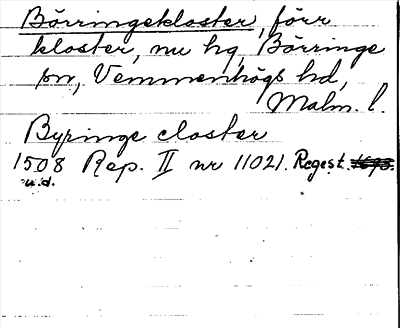 Börringekloster, förr
kloster, nu hg, Börringe
sn, Vemmenhögs hd,
Malm. l.
Byringe closter
1508 Rep. II nr 11021. Regest.
u.d.